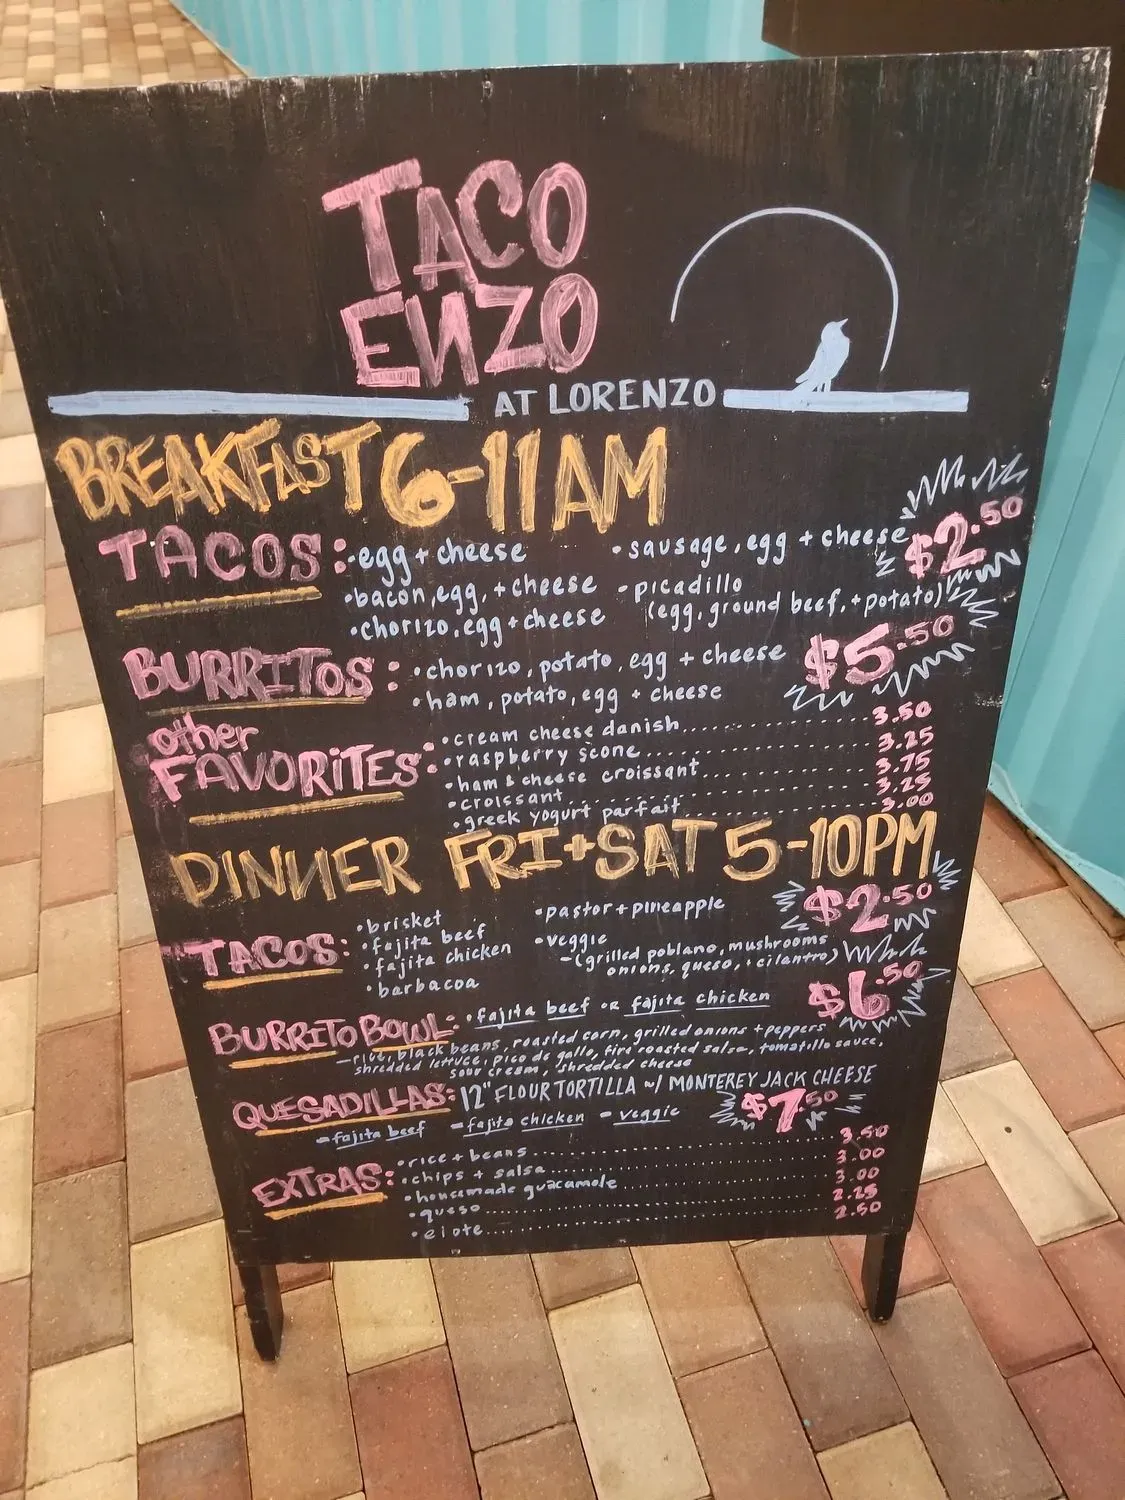 TACO
ENZO
AT LORENZO
BREAKFAST 6-11AM
TACOS: • egg + cheese • sausage, egg + cheese $2.50
• bacon, egg, + cheese • picadillo
• chorizo, egg + cheese (egg, ground beef, + potato)
BURRITOS: • chorizo, potato, egg + cheese $5.50
• ham, potato, egg + cheese
other
FAVORITES: • cream cheese danish 3.50
• raspberry scone 3.25
• ham & cheese croissant 3.75
• croissant 3.25
• greek yogurt parfait 3.00
DINNER FRI+SAT 5-10PM
TACOS: • brisket • pastor + pineapple $2.50
• fajita beef • veggie
• fajita chicken -(grilled poblano, mushrooms
• barbacoa onions, queso, + cilantro)
BURRITO BOWL: • fajita beef or fajita chicken $6.50
- rice, black beans, roasted corn, grilled onions + peppers
shredded lettuce, pico de gallo, fire roasted salsa, tomatillo sauce,
sour cream, shredded cheese
QUESADILLAS: 12" FLOUR TORTILLA w/ MONTEREY JACK CHEESE
- fajita beef - fajita chicken - veggie $7.50
EXTRAS: • rice + beans 3.50
• chips + salsa 3.00
• homemade guacamole 3.00
• queso 2.25
• elote 2.50